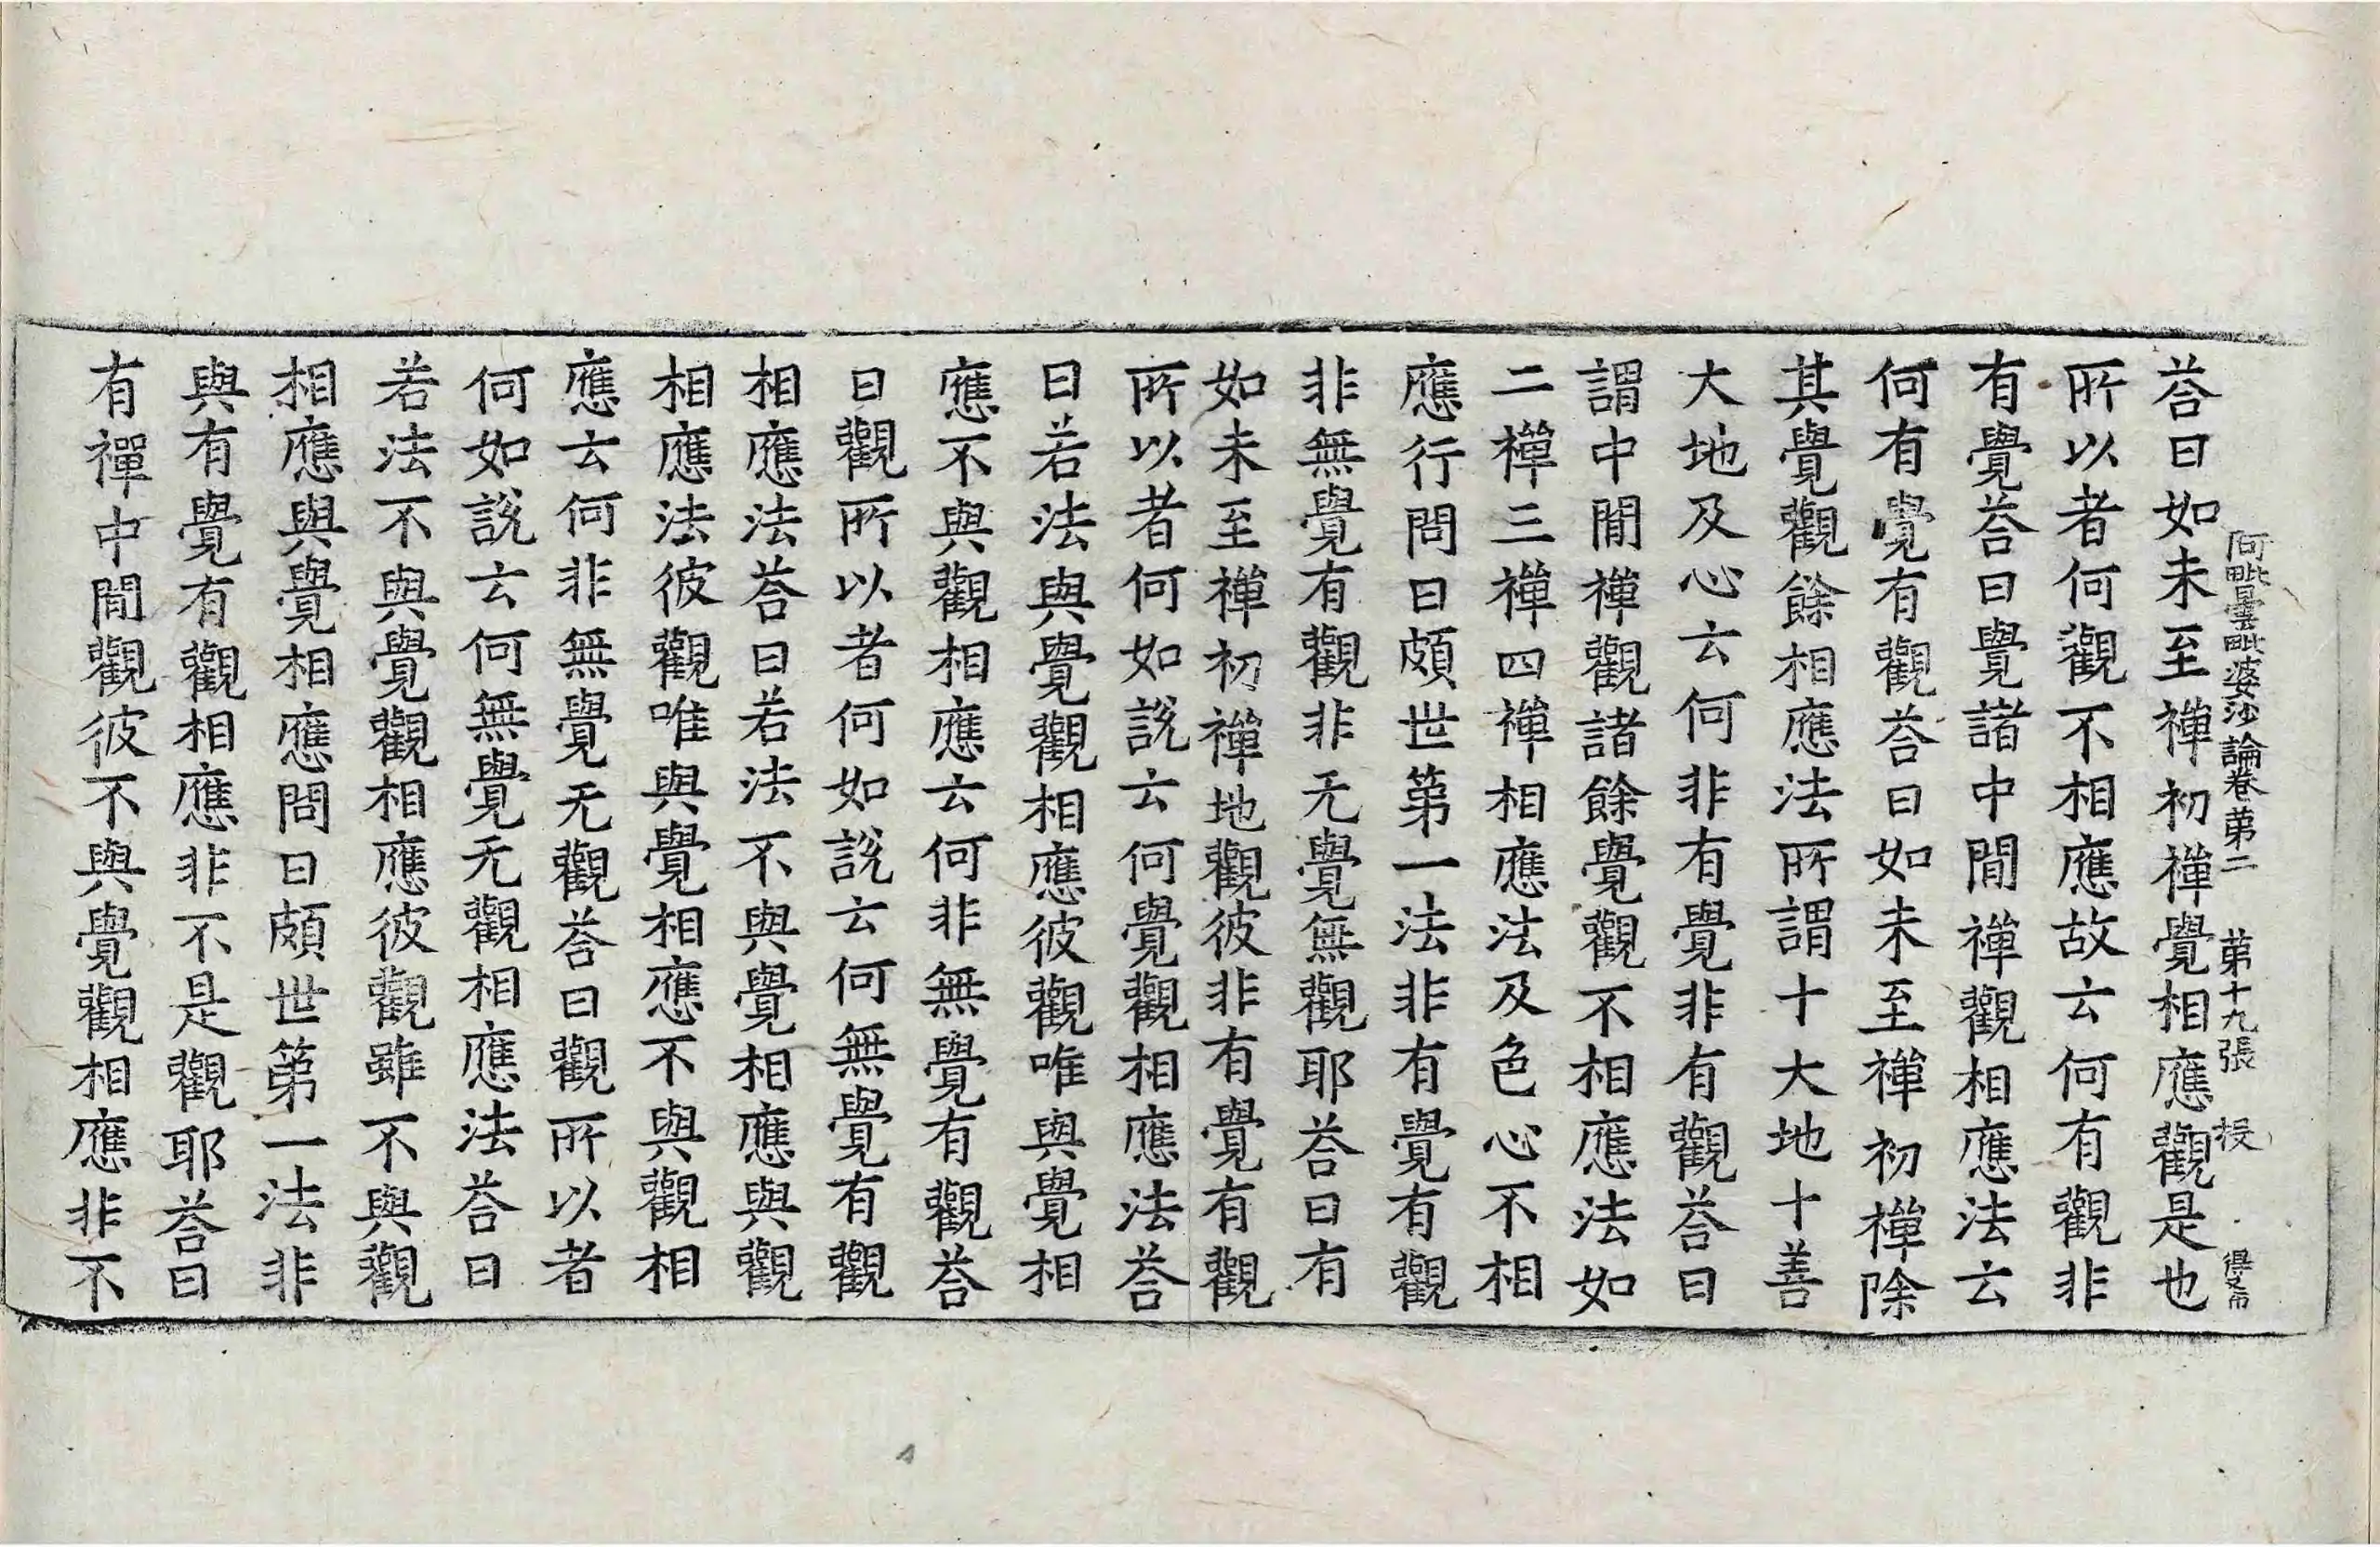 阿毗曇毗婆沙論卷第二　第十九張　投　得文
荅曰如未至禪初禪覺相應觀是也
所以者何觀不相應故云何有觀非
有覺荅曰覺諸中間禪觀相應法云
何有覺有觀荅曰如未至禪初禪除
其覺觀餘相應法所謂十大地十善
大地及心云何非有覺非有觀荅曰
謂中間禪觀諸餘覺觀不相應法如
二禪三禪四禪相應法及色心不相
應行問曰頗世第一法非有覺有觀
非無覺有觀非无覺無觀耶荅曰有
如未至禪初禪地觀彼非有覺有觀
所以者何如說云何覺觀相應法荅
曰若法與覺觀相應彼觀唯與覺相
應不與觀相應云何非無覺有觀荅
曰觀所以者何如說云何無覺有觀
相應法荅曰若法不與覺相應與觀
相應法彼觀唯與覺相應不與觀相
應云何非無覺无觀荅曰觀所以者
何如說云何無覺无觀相應法荅曰
若法不與覺觀相應彼觀雖不與觀
相應與覺相應問曰頗世第一法非
與有覺有觀相應非不是觀耶荅曰
有禪中間觀彼不與覺觀相應非不